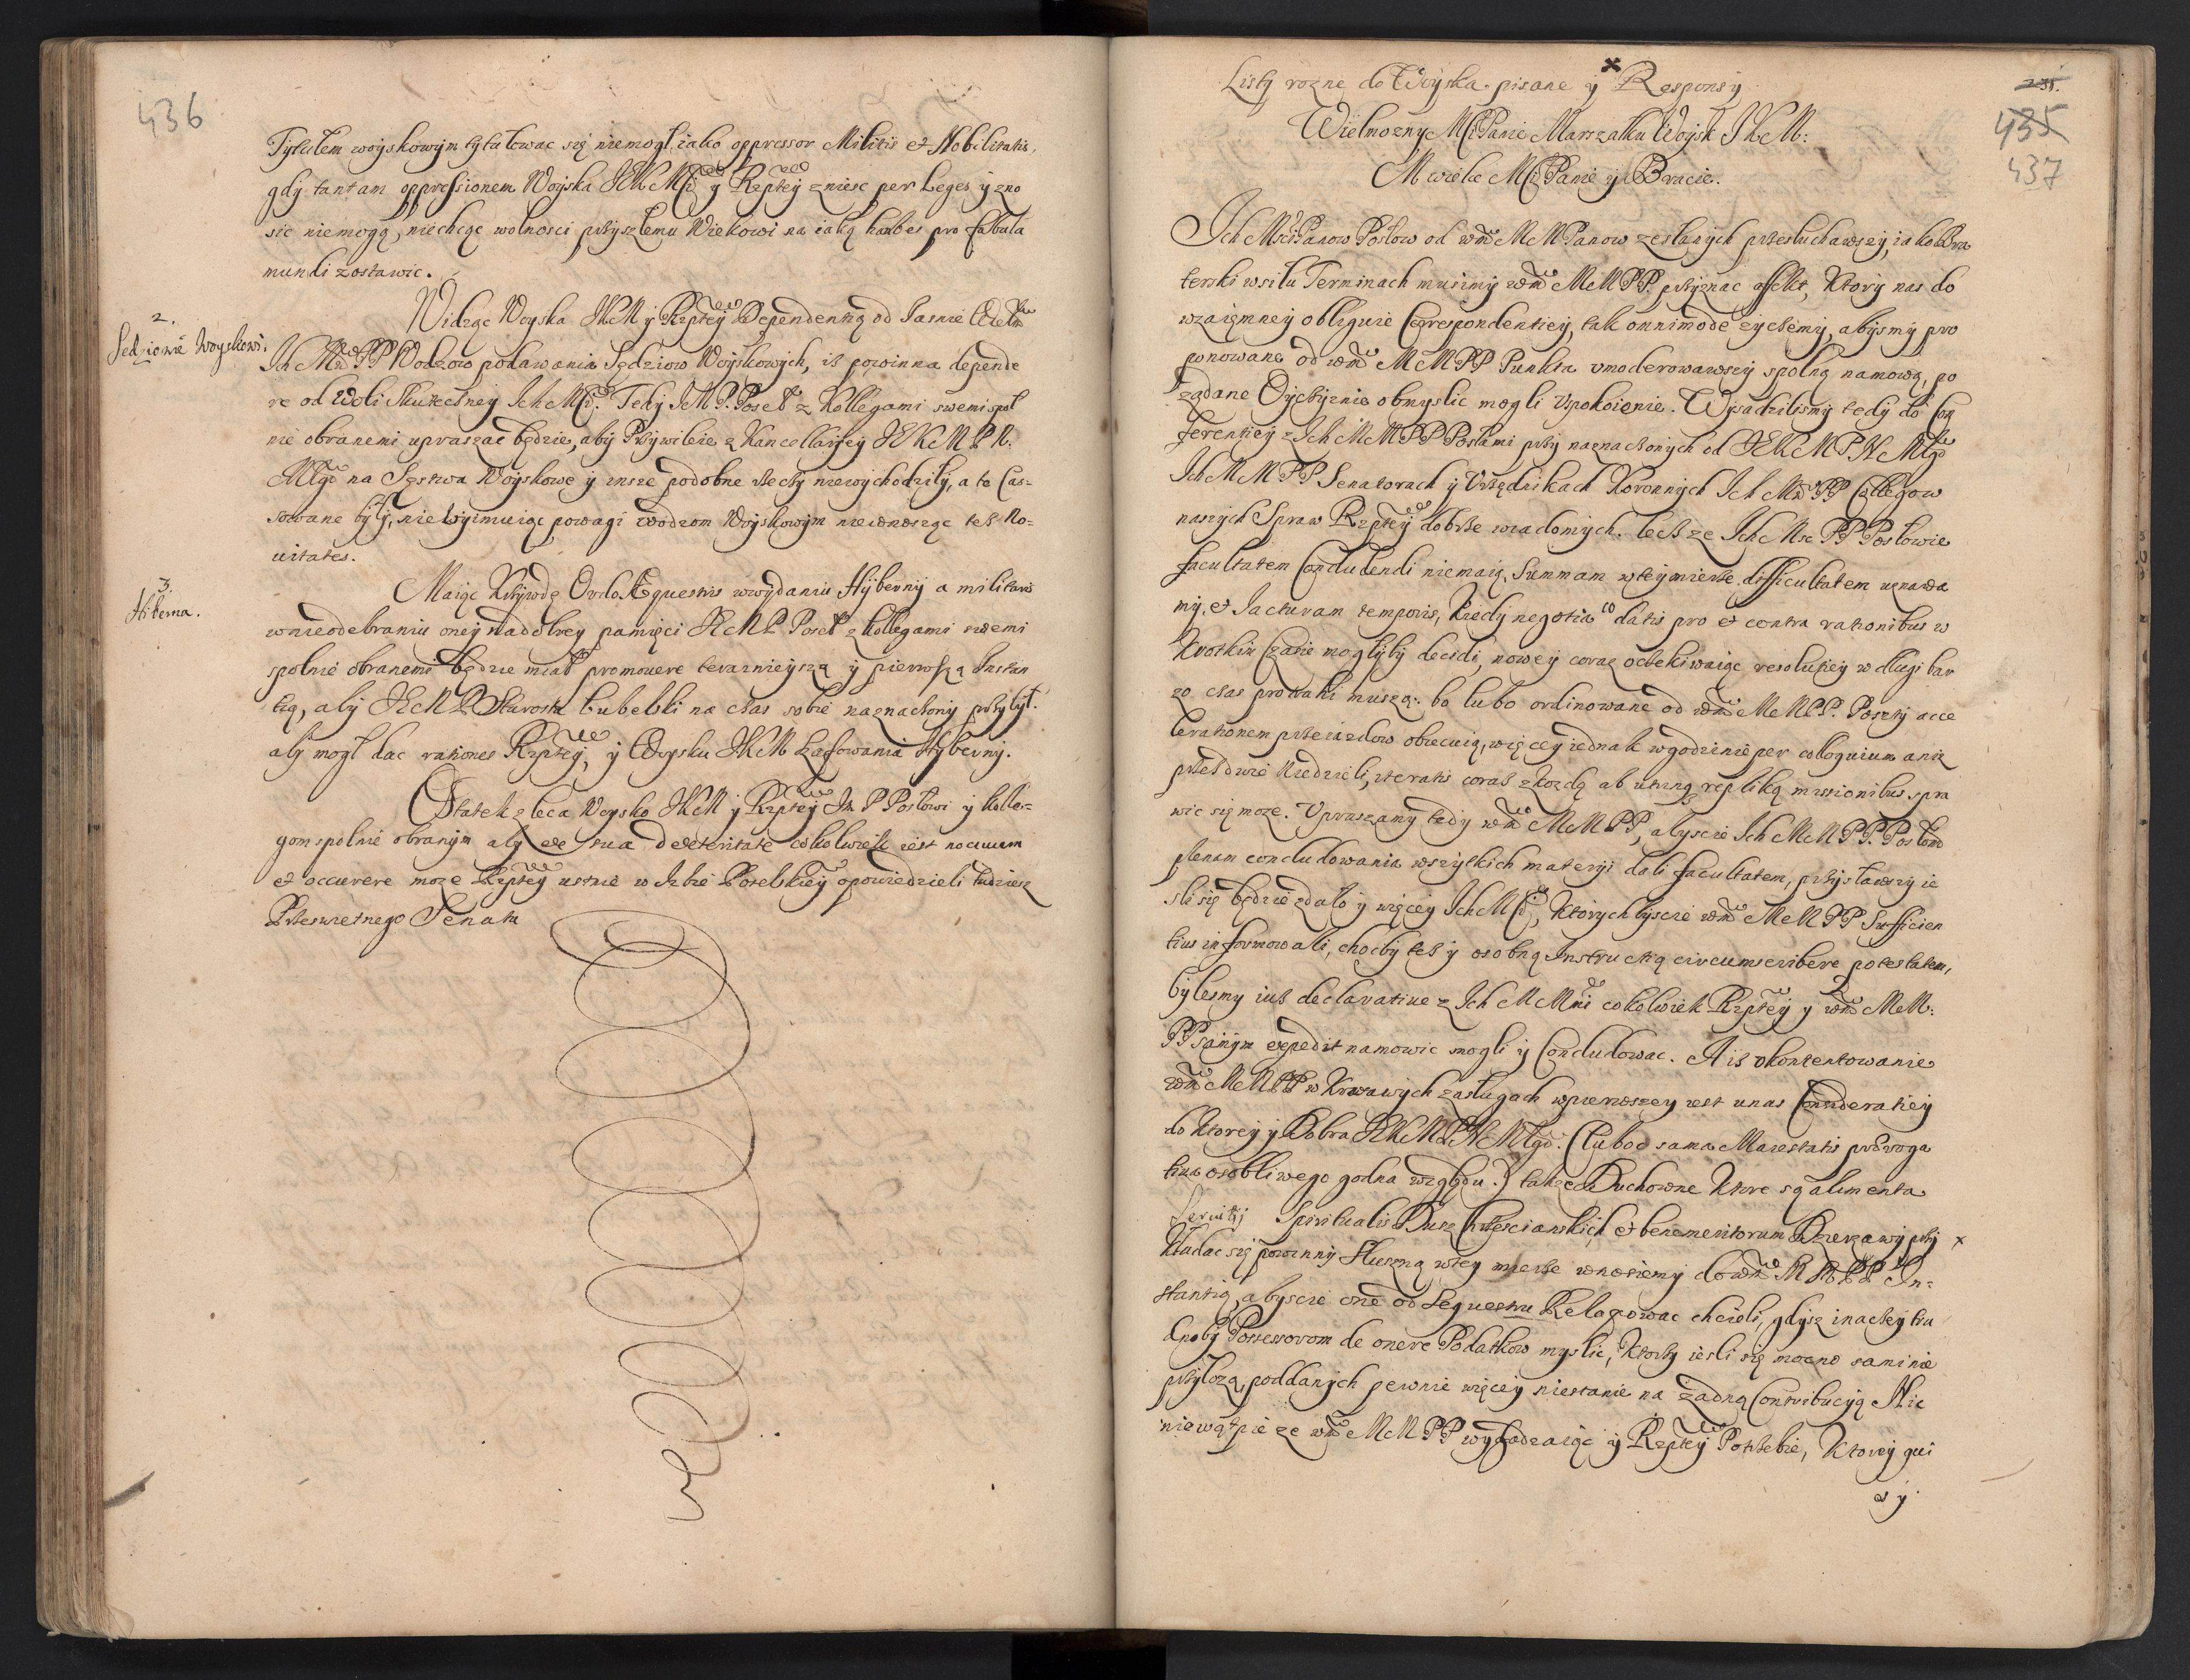 436
Tytułem woyskowym tytułowac się niemogł iako oppressor Militis et Nobilitatis,
gdy tantam oppressionem Woyska JKMci y Rzptey zniesc per Leges y zno
sic niemogą, niechcąc wolnosci przyszłemu Wiekowi na iaką pro fabula
mundi zostawic.
2.
Sędziowie Woyskowi.
Widząc Woyska JKM y Rzptey Dependentią od Jasnie Wielm
Ich Mci PP Wodzow podawania Sędziow Woyskowych, iż powinna depende
re od Woli Skuteczney Ich Mci. Tedy JeM P. Poseł z Kollegami swemi spol
nie obranemi upraszac będzie, aby Przywileie z Kancellaryey JEKcM P. N.
Młgo na Sęstwa Woyskowe y insze podobne rzeczy niewychodziły, a te Cas-
sowane były, nie wyimuiąc powagi wodzom Woyskowym niewnosząc też No-
uitates.
3.
Hiberna.
Maiąc Krzywdę Ordo Equestris w wydaniu Hyberny a militaris
w nieodebraniu oney nadobrey pamięci JKcM P. Poseł z Kollegami swemi
spolnie obranemi będzie miał promouere teraznieyszą y pierwszą Instan
tią, aby JEcM P. Starosta Lubelski na czas sobie naznaczony przybył.
aby mogł dac rationes Rzptey, y Woysku JKcM Szafowania Hyberny.
Ostatek zleca Woysko JKcM y Rzptey Ich P Posłowi y Kolle-
gom spolnie obranym aby ex sua dexteritate cokolwiek iest nociuum
et occurere moze Rzptey ustnie w Izbie Poselskiey opowiedzieli tudziesz
Przeswietnego Senatu
Listy rozne do Woyska pisane y Responsy
235.
435
437
Wielmozny Mci Panie Marszałku Woysk JKcM:
M wielce Mci Panie y Bracie.
Ich Msciow Panow Posłow od wm McM Panow zesłanych przesłuchawszy, iako Bra
terski wsiłu Terminach musimy wm McM PP. przyznac affekt, Ktory nas do
wzaięmney obliguie Correspondentiey, tak omnimode zyczemy, abysmy pro
ponowane od wm McM PP Punkta vmoderowawszy spolną namową, po
ządane Oyczyznie obmyslic mogli Vspokoienie. Wysadzilismy tedy do Con
ferentiey z Ich McM PP Posłami przy naznaczonych od JEKcM P. N. Młgo
Ich McM PP Senatorach y Vrzędnikach Koronnych Ich Mci PP Collegow
naszych Spraw Rzptey dobrze wiadomych. lecz ze Ich Msc PP Posłowie
facultatem Concludendi niemaią, Summam w teymierze difficultatem uznawa
my, et Iacturam temporis, Kiedy negotia co datis pro et contra rationibus w
Krotkim czasie mogłyby decidi, nowey coraz oczekiwaiąc resolutiey w długi bar
zo czas prowahi muszą: bo lubo ordinowane od wm McM PP. Poszty acce
lerationem przeiazdow obiecuią, więcey iednak w godzinie per colloquium aniz
przez dwie Niedzieli, iteratis coraz z kozdą ab utrinq repliką missionibus spra
wic się moze. Vpraszamy tedy wm McM PP, abyscie Ich McM PP. Posłom
plenam concludowania wszytkich materyi dali facultatem, przysławszy ie
sli się będzie zdało y więcey Ich Mci, Ktorychbyscie wm McM PP Sufficien
tius informowali, chocby też y osobną Instructią circumscribere potestatem,
bylesmy iuż declaratiue z Ich McMmi cokolwiek Rzptey y wm McM:
PP samym expedit namowic mogli y Concludowac. A iż vkontentowanie
wm McM PP w Krwawych zasługach w pierwszey iest unas Consideratiey
do Ktorey y Dobra JKcM P. N. Młgo. (lubo sama Maiestatis prероga
tiua osobliwego godna względu.) takze Duchowne Ktore są alimenta
Seruitij Spiritualis Dusz Chrzescianskich et benemeritorum Dzierzawy przy
kładac się powinny słuszną wtey mierze wnosiemy do wm M M PP In-
stantią, abyscie one od Sequestru Relaxowac chcieli, gdysz inaczey tru
dnoby Possessorom de onere Podatkow myslic, Ktorzy iesli się mocno sami nie
przylozą, poddanych pewnie więcey niestanie na zadną Contribucyą Nic
niewątpie ze wm McM PP wygadzaiąc y Rzptey Potrzebie, Ktorey qui